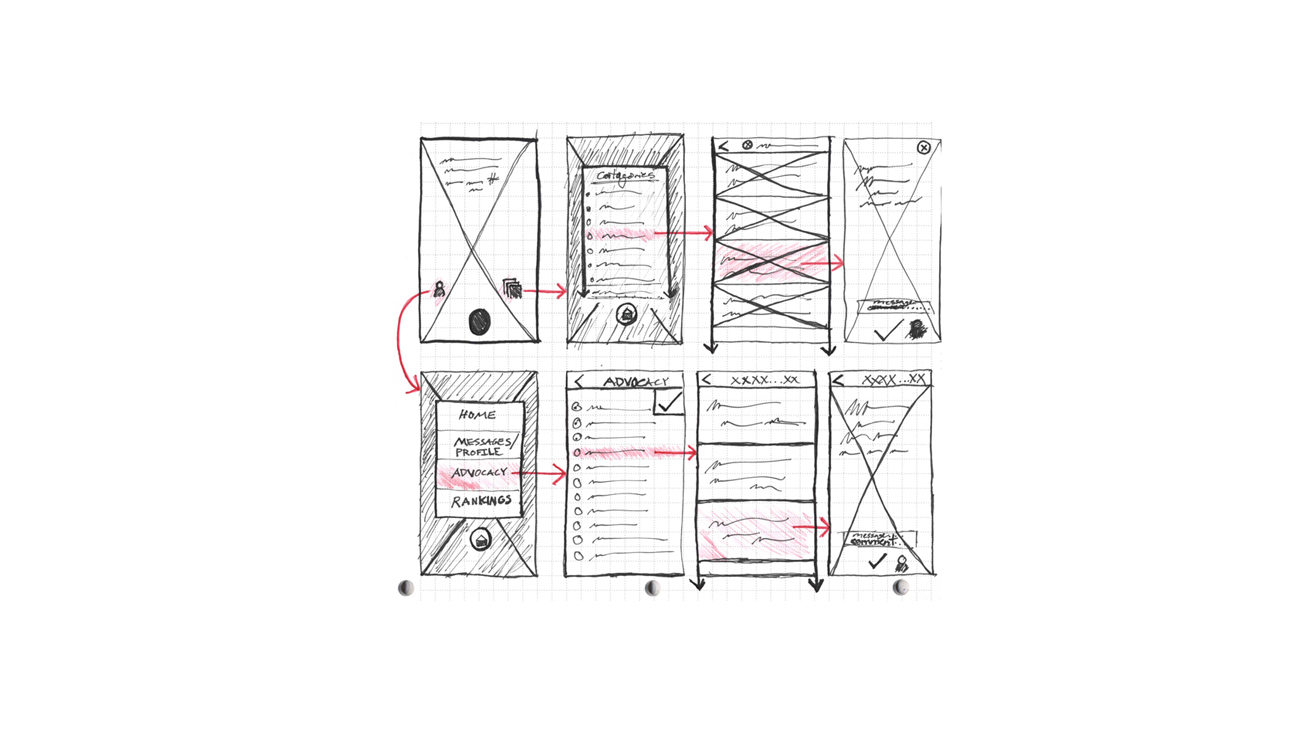 #
Categories
message
comment......
HOME
MESSAGES/
PROFILE
ADVOCACY
RANKINGS
ADVOCACY
XXXX...XX
XXXX...XX
message
comment..